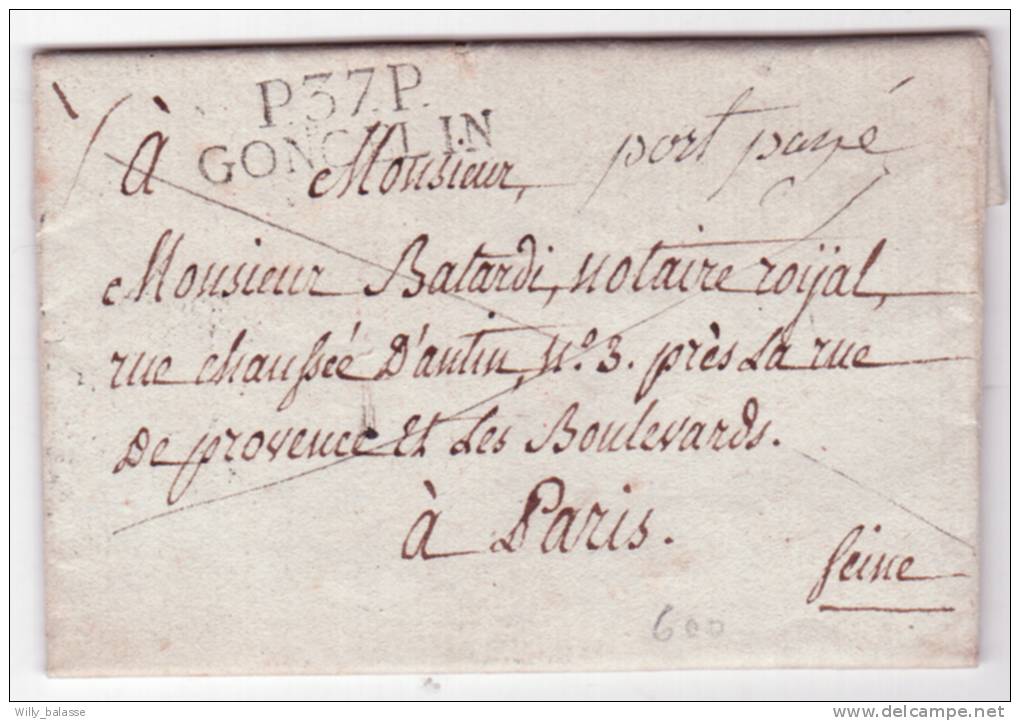 P.37.P.
GONCELIN
à Monsieur, port payé
Monsieur Batardi, notaire roÿal,
rue chaussée D'antin, n.o 3. près La rue
De provence et Les Boulevards.
à Paris.
Seine
600
Willy_balasse
delcampe.net